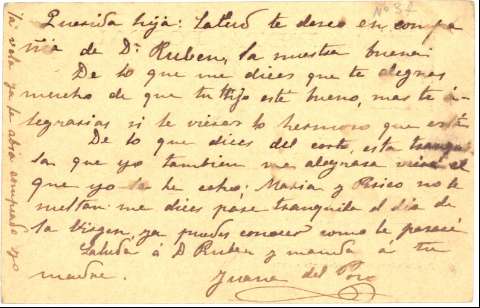 Nº 32
Querida hija: Salud te deseo en compa
ñia de Dn Ruben, la nuestra buena.
De lo que me dices que te alegras
mucho de que tu hijo esté bueno, mas te a-
legrarias si le vieras lo hermoso que está
De lo que dices del corte, esta tranqui
la que yo tambien me alegrara el
que yo la he echo; Maria y Perico no te
me dices pase tranquila el dia de
la Virgen, ya puedes conocer como le pasaré
Saluda á D Ruben y manda á tu
madre.
Juana del
la vela ya te abia comprado yo